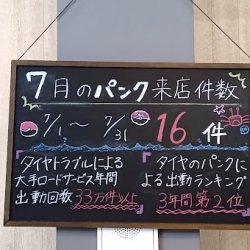 7月のパンク来店件数
7/1～7/31 16件
タイヤトラブルによる
大手ロードサービス年間
出動回数 33万件以上
タイヤのパンクに
よる出動ランキング
3年間第2位